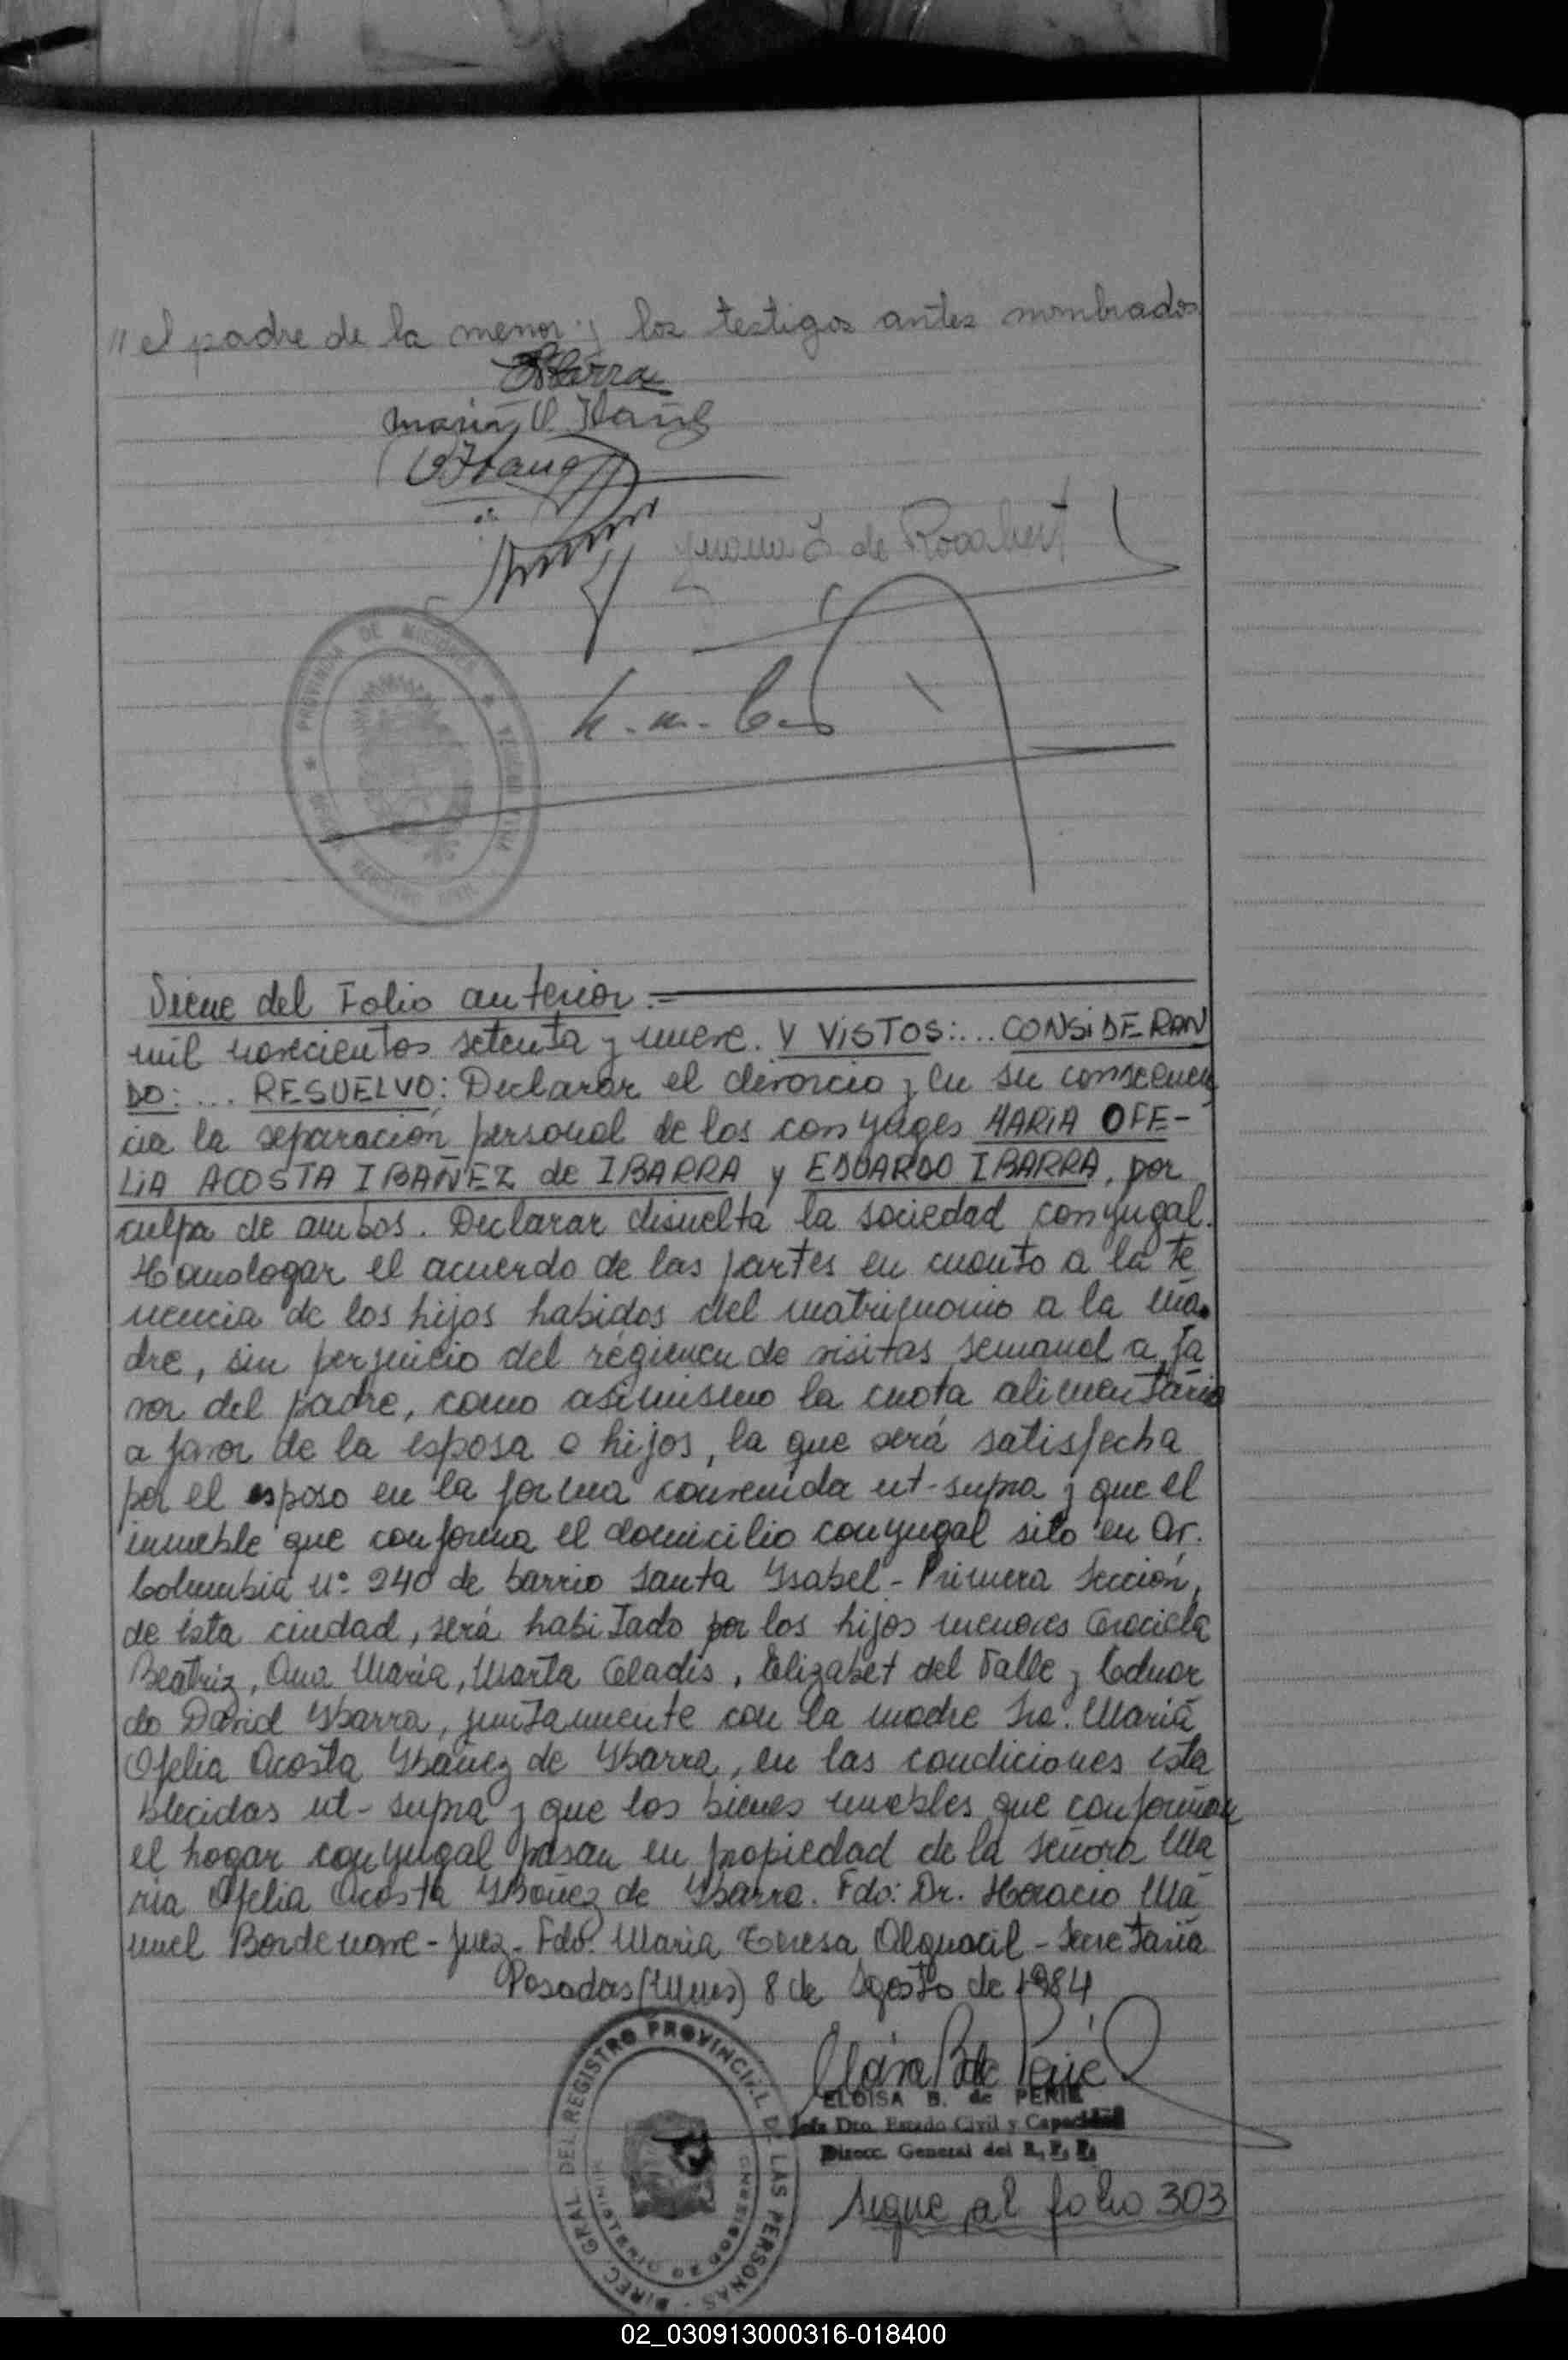 " el padre de la menor y los testigos antes nombrados
Ibarra
Maria O Ibañez
Juana I de
PROVINCIA DE MISIONES
Viene del Folio anterior.=
mil novecientos setenta y nueve. Y VISTOS:... CONSIDERAN
DO:... RESUELVO: Declarar el divorcio y en su consecuen
cia la separación personal de los conyuges MARIA OFE-
LIA ACOSTA IBAÑEZ de IBARRA y EDUARDO IBARRA, por
culpa de ambos. Declarar disuelta la sociedad conyugal.
Homologar el acuerdo de las partes en cuanto a la te
nencia de los hijos habidos del matrimonio a la ma
dre, sin perjuicio del régimen de visitas semanal a fa
vor del padre, como asimismo la cuota alimentaria
a favor de la esposa e hijos, la que será satisfecha
por el esposo en la forma convenida ut-supra y que el
inmueble que conforma el domicilio conyugal sito en Av.
Columbia Nº 240 de barrio Santa Ysabel - Primera Sección,
de ésta ciudad, será habitado por los hijos menores Graciela
Beatriz, Ana María, Marta Gladis, Elizabet del Valle y Eduar
do David Ybarra, juntamente con la madre Sra. María
Ofelia Acosta Ybañez de Ybarra, en las condiciones esta
blecidas ut-supra y que los bienes muebles que conforman
el hogar conyugal pasan en propiedad de la señora Ma
ria Ofelia Acosta Ybañez de Ybarra. Fdo: Dr. Horacio Ma
nuel Bordenave - Juez - Fdo. Maria Teresa Alguacil - Secretaria
Posadas (Mnes) 8 de Agosto de 1984
ELOISA B. de PERIE
Jefa Dto. Estado Civil y Capacidad
Direcc. General del R. P. P.
DIREC. GRAL DEL REGISTRO PROVINCIAL DE LAS PERSONAS
MINISTERIO DE GOBIERNO
Sigue al folio 303
02_030913000316-018400